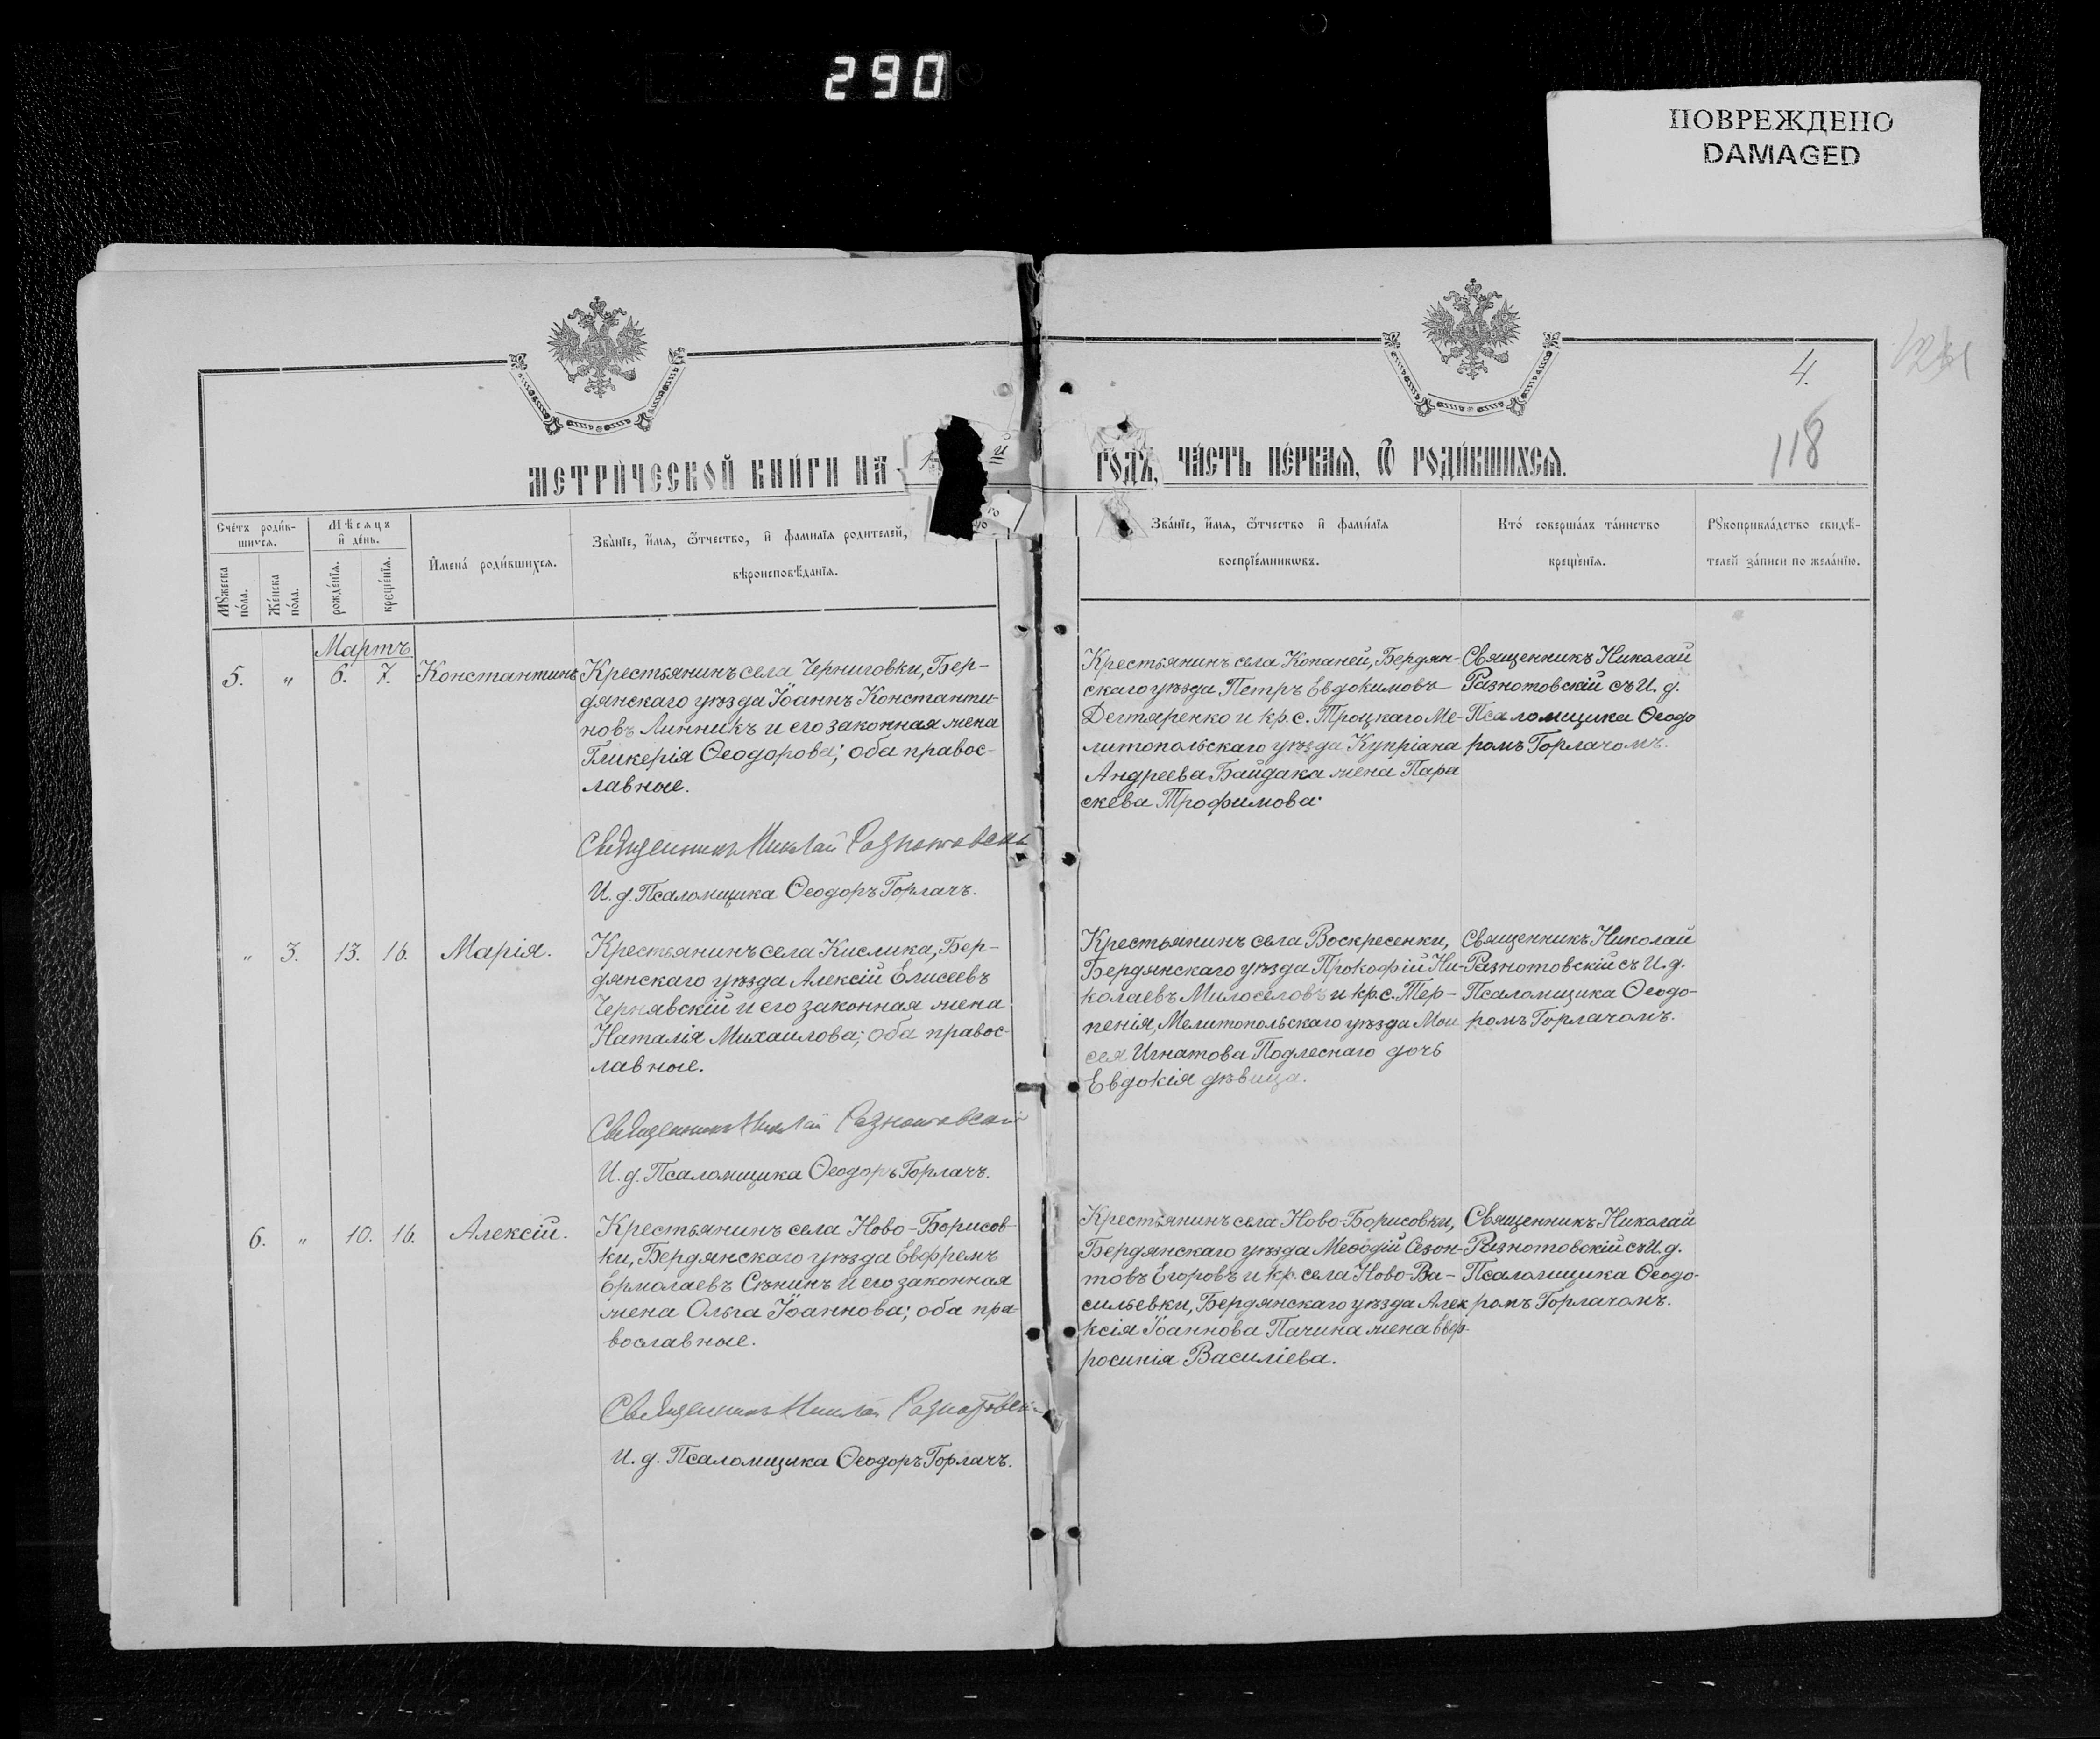 290
ПОВРЕЖДЕНО
DAMAGED
4.
118
МЕТРИ́ЧЕСКОЙ КНИ́ГИ НА
ГО́ДЪ, ЧА́СТЬ ПЕ́РВАЯ, Ѽ РОДИ́ВШИХСЯ.
Сче́тъ роди́в-
шихся.
Мѣсяцъ
и҆ де́нь.
Мꙋжеска по́ла.
Же́нска по́ла.
рожде́нїѧ.
креще́нїѧ.
И҆мена́ роди́вшихсѧ.
Зва́нїе, и҆́мѧ, ѻ҆́тчество, и҆ фами́лїѧ родителей,
вѣроисповѣданїѧ.
Зва́нїе, и҆́мѧ, ѻ҆́тчество и҆ фами́лїѧ
воспрїе́мникѡвъ.
Кто́ соверша́лъ та́инство
креще́нїѧ.
Рꙋкоприкла́дство свидѣ́-
телей за́писи по жела́нїю.
Мартъ
5. " 6. 7. Константинъ
Крестьянинъ села Черниговки, Бер-
дянскаго уѣзда Іоаннъ Константи-
новъ Линникъ и его законная жена
Гликерія Ѳеодорова; оба правос-
лавные.
Священникъ Николай Разнотовскій
И. д. Псаломщика Ѳеодоръ Горлачъ.
Крестьянинъ села Копаней, Бердян-
скаго уѣзда Петръ Евдокимовъ
Дегтяренко и кр. с. Троцкаго Ме-
литопольскаго уѣзда Купріана
Андреева Байдака жена Пара
скева Трофимова.
Священникъ Николай
Разнотовскій съ И. д.
Псаломщика Ѳеодо
ромъ Горлачомъ.
" 3. 13. 16. Марія.
Крестьянинъ села Кислика, Бер-
дянскаго уѣзда Алексій Елисеевъ
Чернявскій и его законная жена
Наталія Михаилова; оба правос-
лавные.
Священникъ Николай Разнотовскій
И. д. Псаломщика Ѳеодоръ Горлачъ.
Крестьянинъ села Воскресенки,
Бердянскаго уѣзда Прокофій Ни-
колаевъ Милоселовъ и кр. с. Тер-
пенія, Мелитопольскаго уѣзда Мои
сея Игнатова Подлеснаго дочь
Евдокія дѣвица.
Священникъ Николай
Разнотовскій съ И. д.
Псаломщика Ѳеодо-
ромъ Горлачомъ.
6. " 10. 16. Алексій.
Крестьянинъ села Ново-Борисов-
ки, Бердянскаго уѣзда Евфремъ
Ермолаевъ Сѣнинъ и его законная
жена Ольга Іоаннова; оба пра-
вославные.
Священникъ Николай Разнотовскій
И. д. Псаломщика Ѳеодоръ Горлачъ.
Крестьянинъ села Ново-Борисовки,
Бердянскаго уѣзда Меѳодій Сезон-
товъ Егоровъ и кр. села Ново-Ва-
сильевки, Бердянскаго уѣзда Алек
ксія Іоаннова Пачина жена Евф-
росинія Василіева.
Священникъ Николай
Разнотовскій съ И. д.
Псаломщика Ѳеодо-
ромъ Горлачомъ.